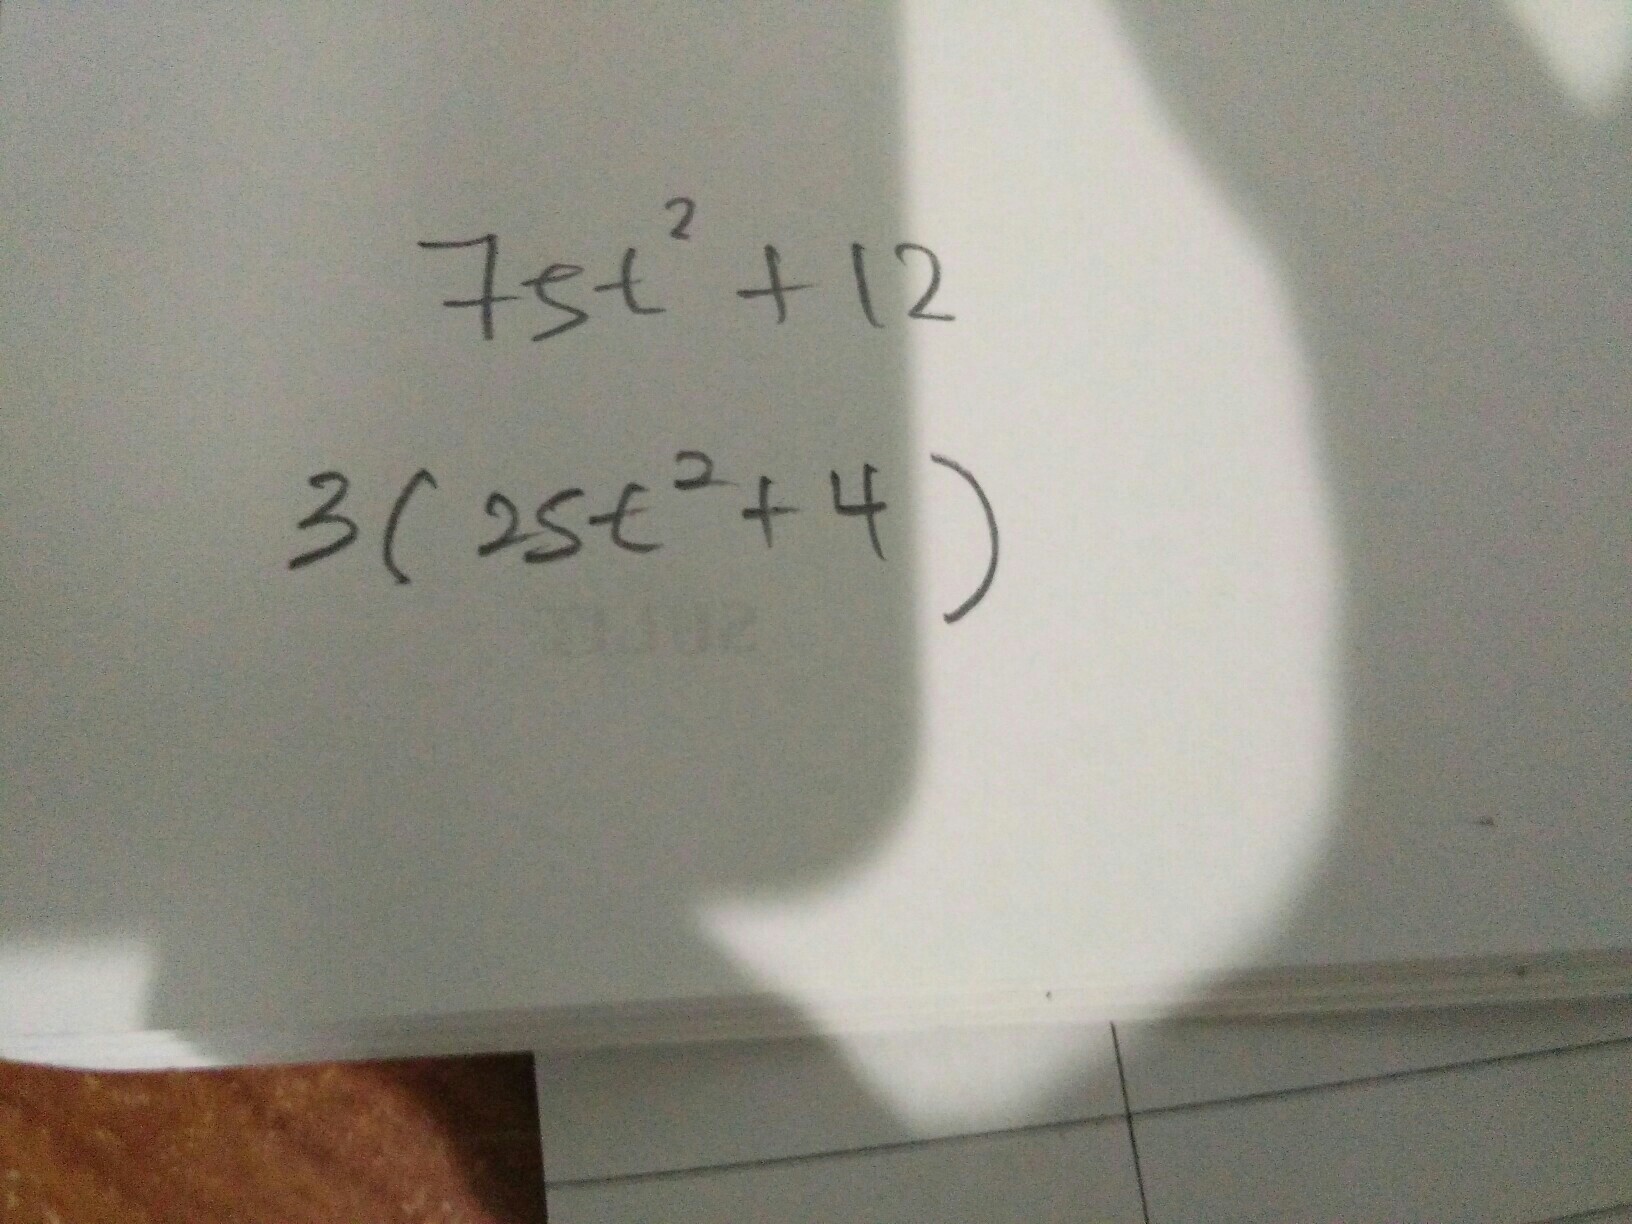 75t² + 12
3(25t² + 4)